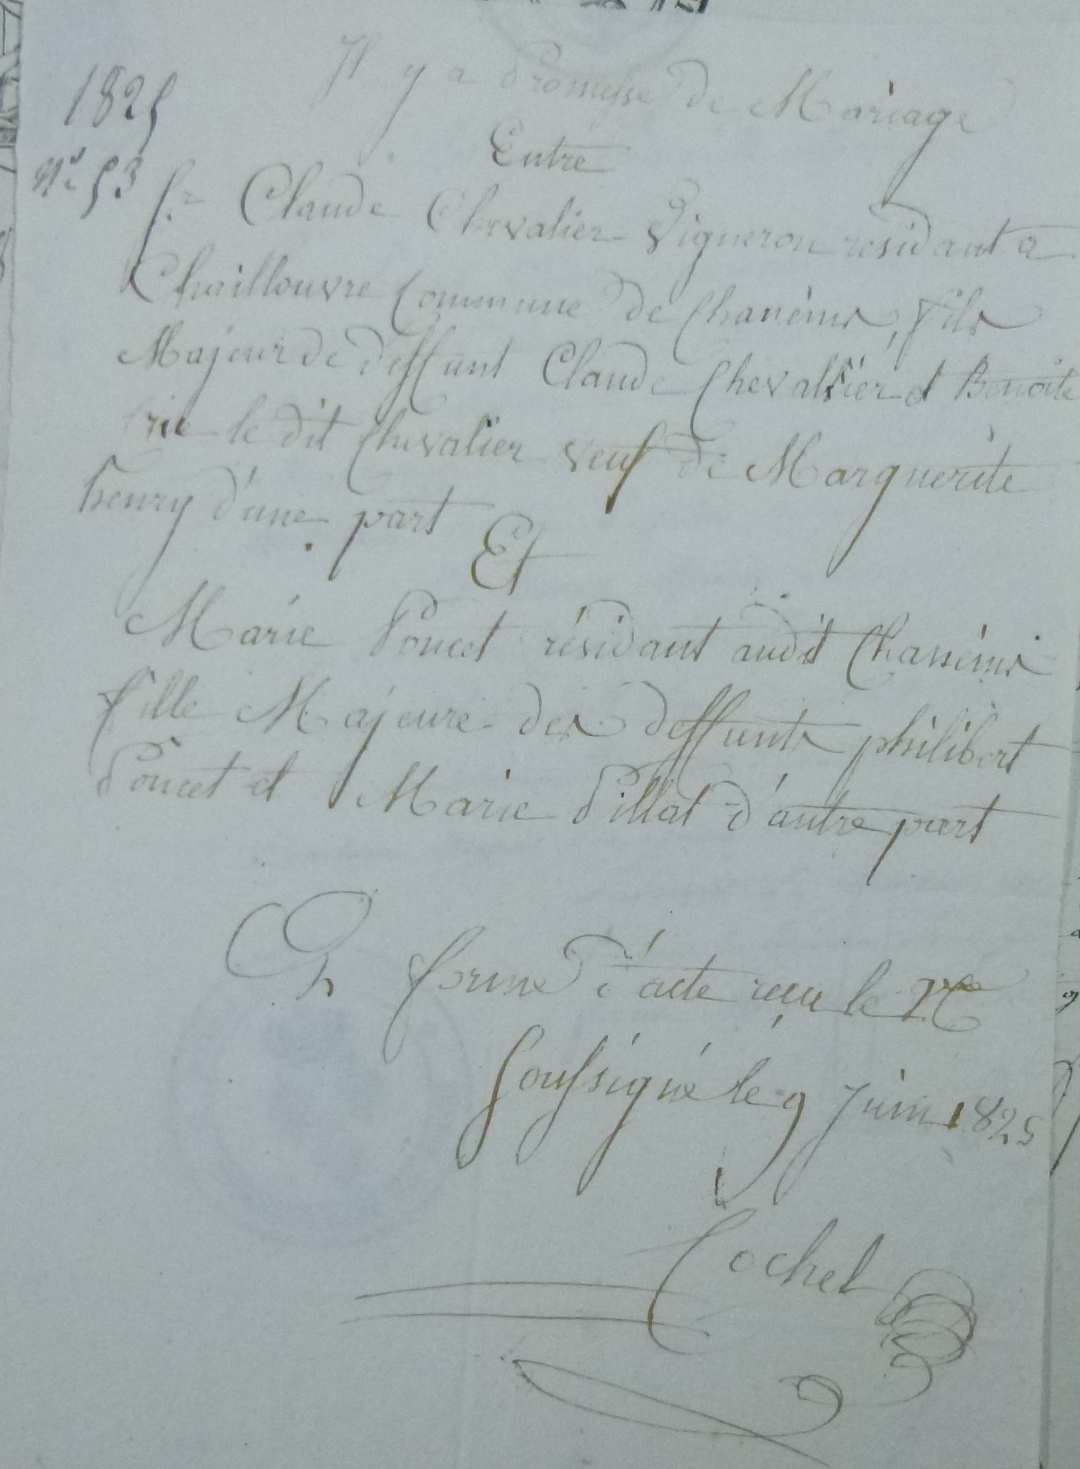 1825
N° 53
Il y a Promesse de Mariage
Entre
Sr Claude Chevalier Vigneron residant a
Chaillouvre Commune de Chanéins, fils
Majeur de deffunt Claude Chevallier et Benoite
brie le dit Chevalier veuf de Marguerite
henry d'une part
Et
Marie Poncet résidant audit Chanéins
fille Majeure des deffunts philibert
Poncet et Marie Pillat d'autre part
En forme d'acte reçu le
Soussigné le 9 Juin 1825
Cochet